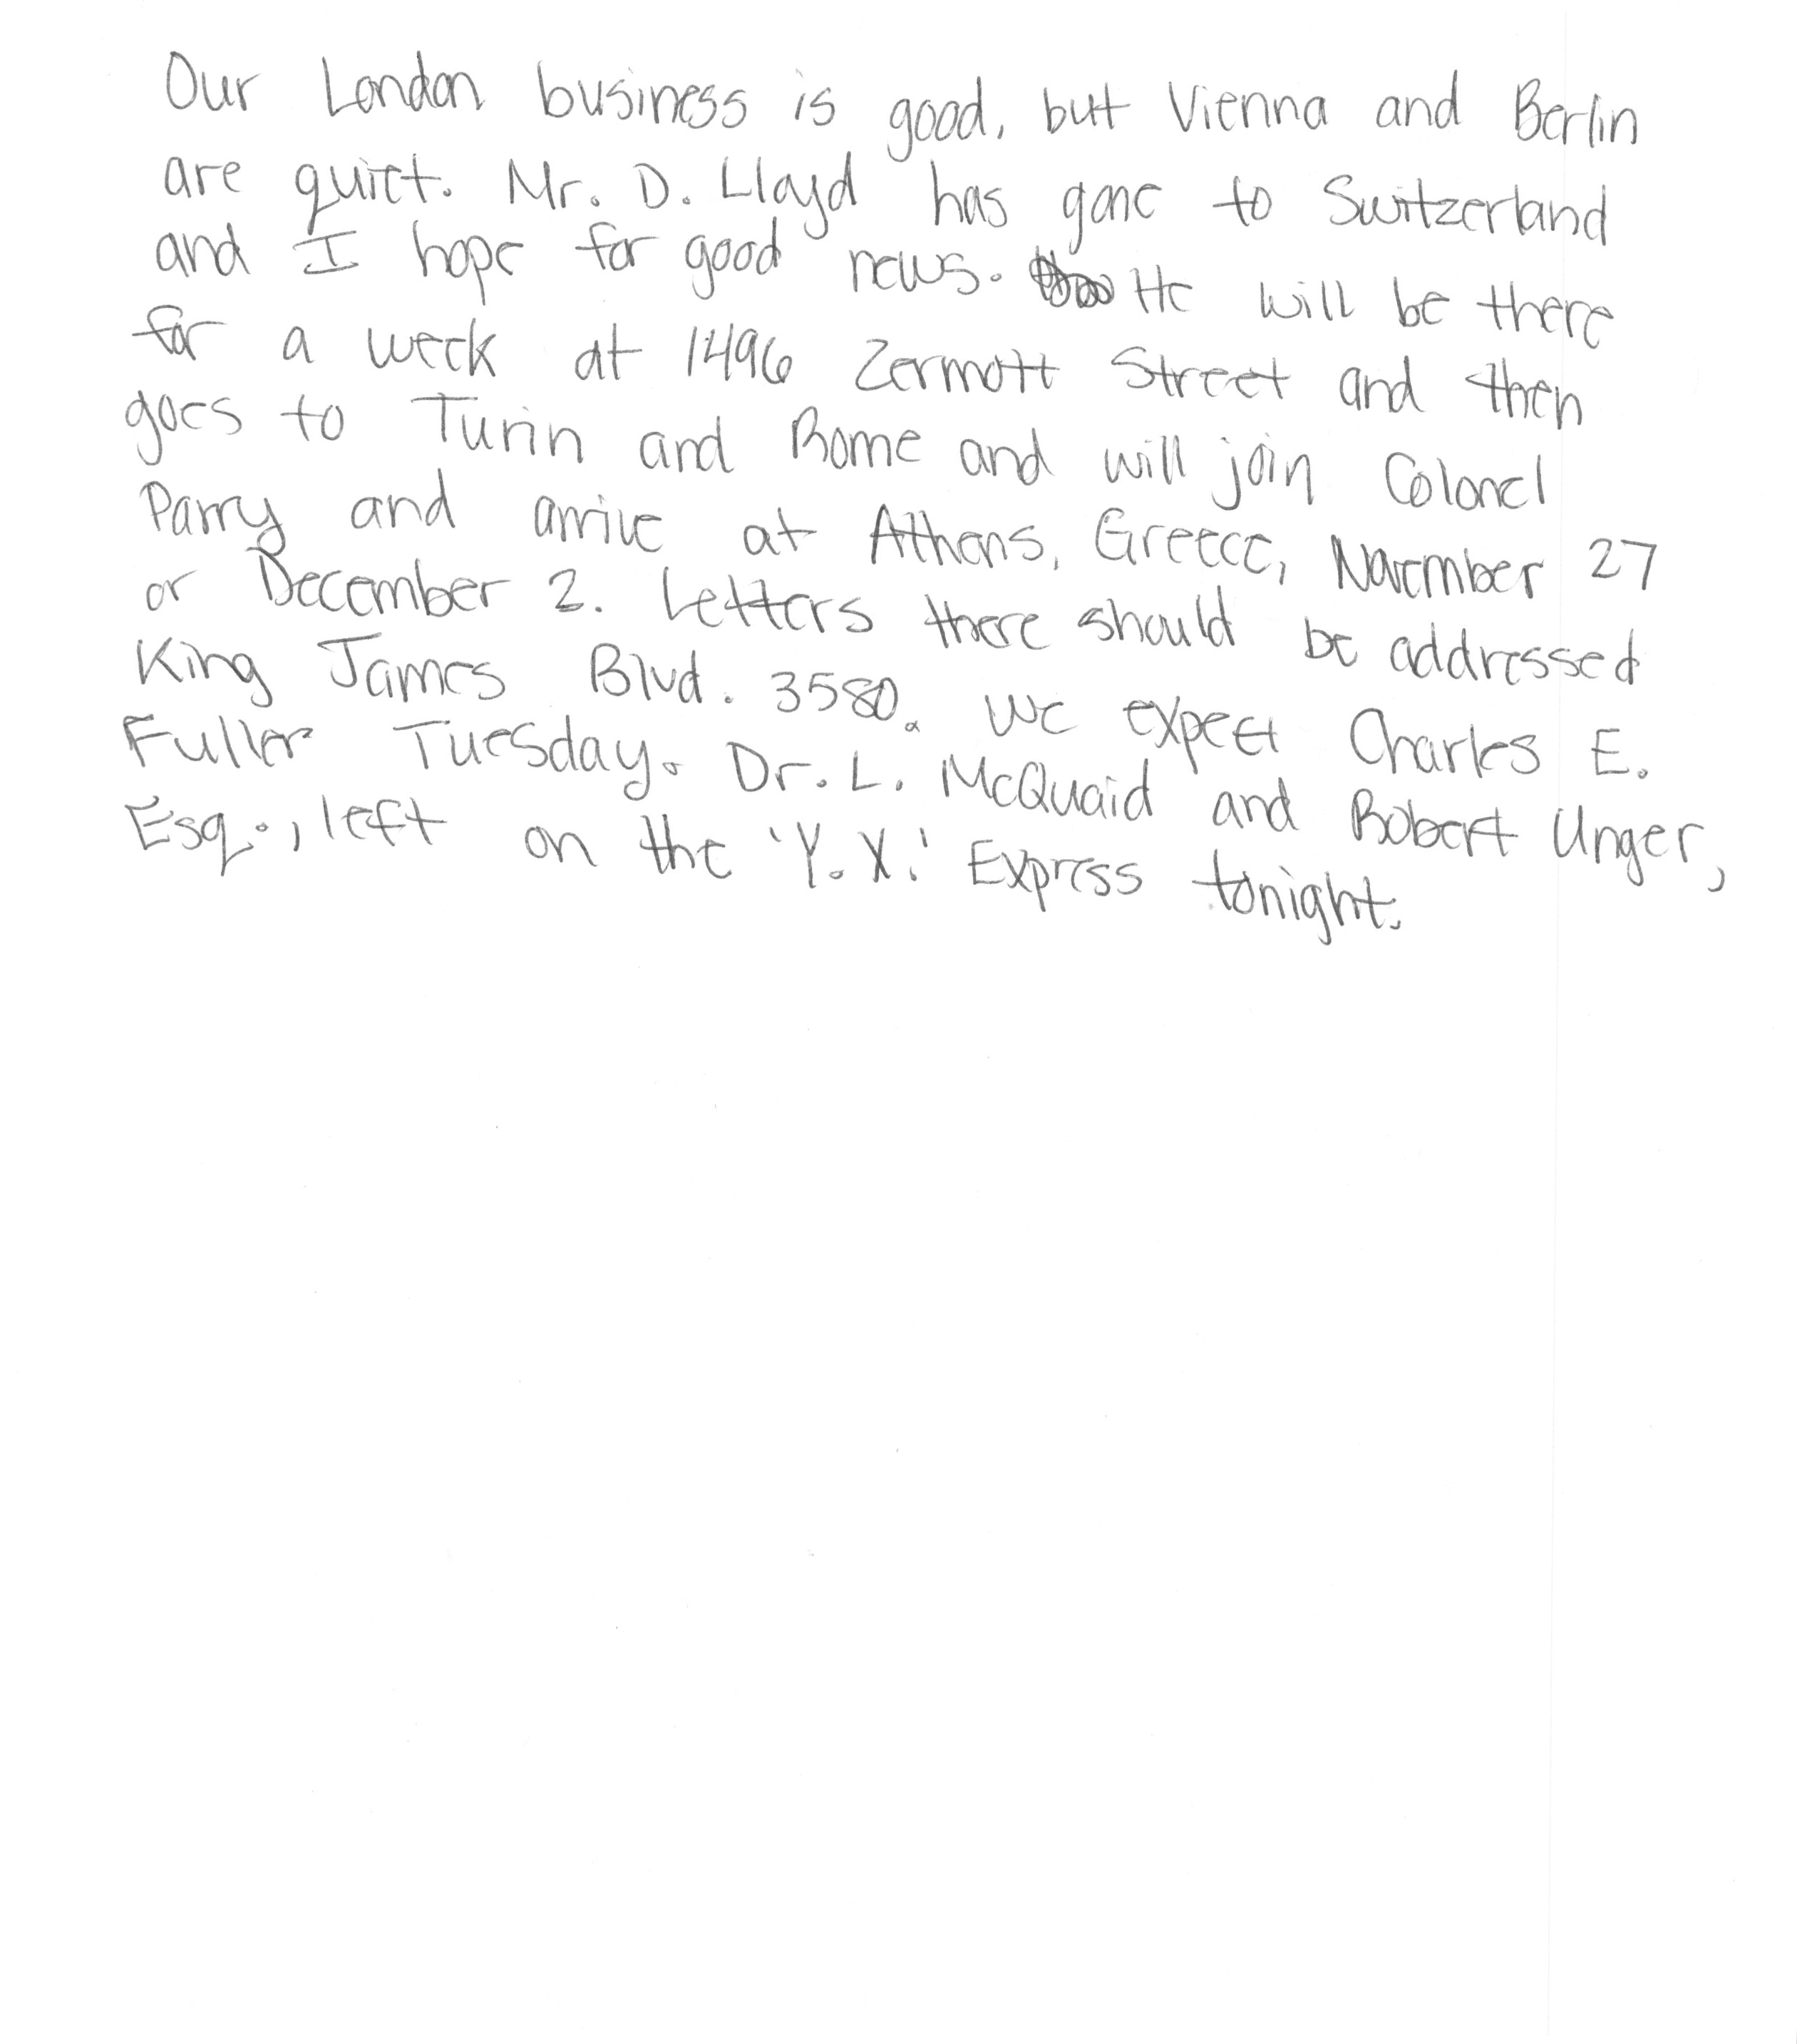 Our London business is good, but Vienna and Berlin
are quiet. Mr. D. Lloyd has gone to Switzerland
and I hope for good news. He will be there
for a week at 1496 Zermott Street and then
goes to Turin and Rome and will join Colonel
Parry and arrive at Athens, Greece, November 27
or December 2. Letters there should be addressed
King James Blvd. 3580. We expect Charles E.
Fuller Tuesday. Dr. L. McQuaid and Robert Unger,
Esq., left on the 'Y.X.' Express tonight.